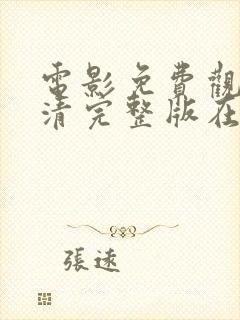 電影免費觀
清完整版在
張遠